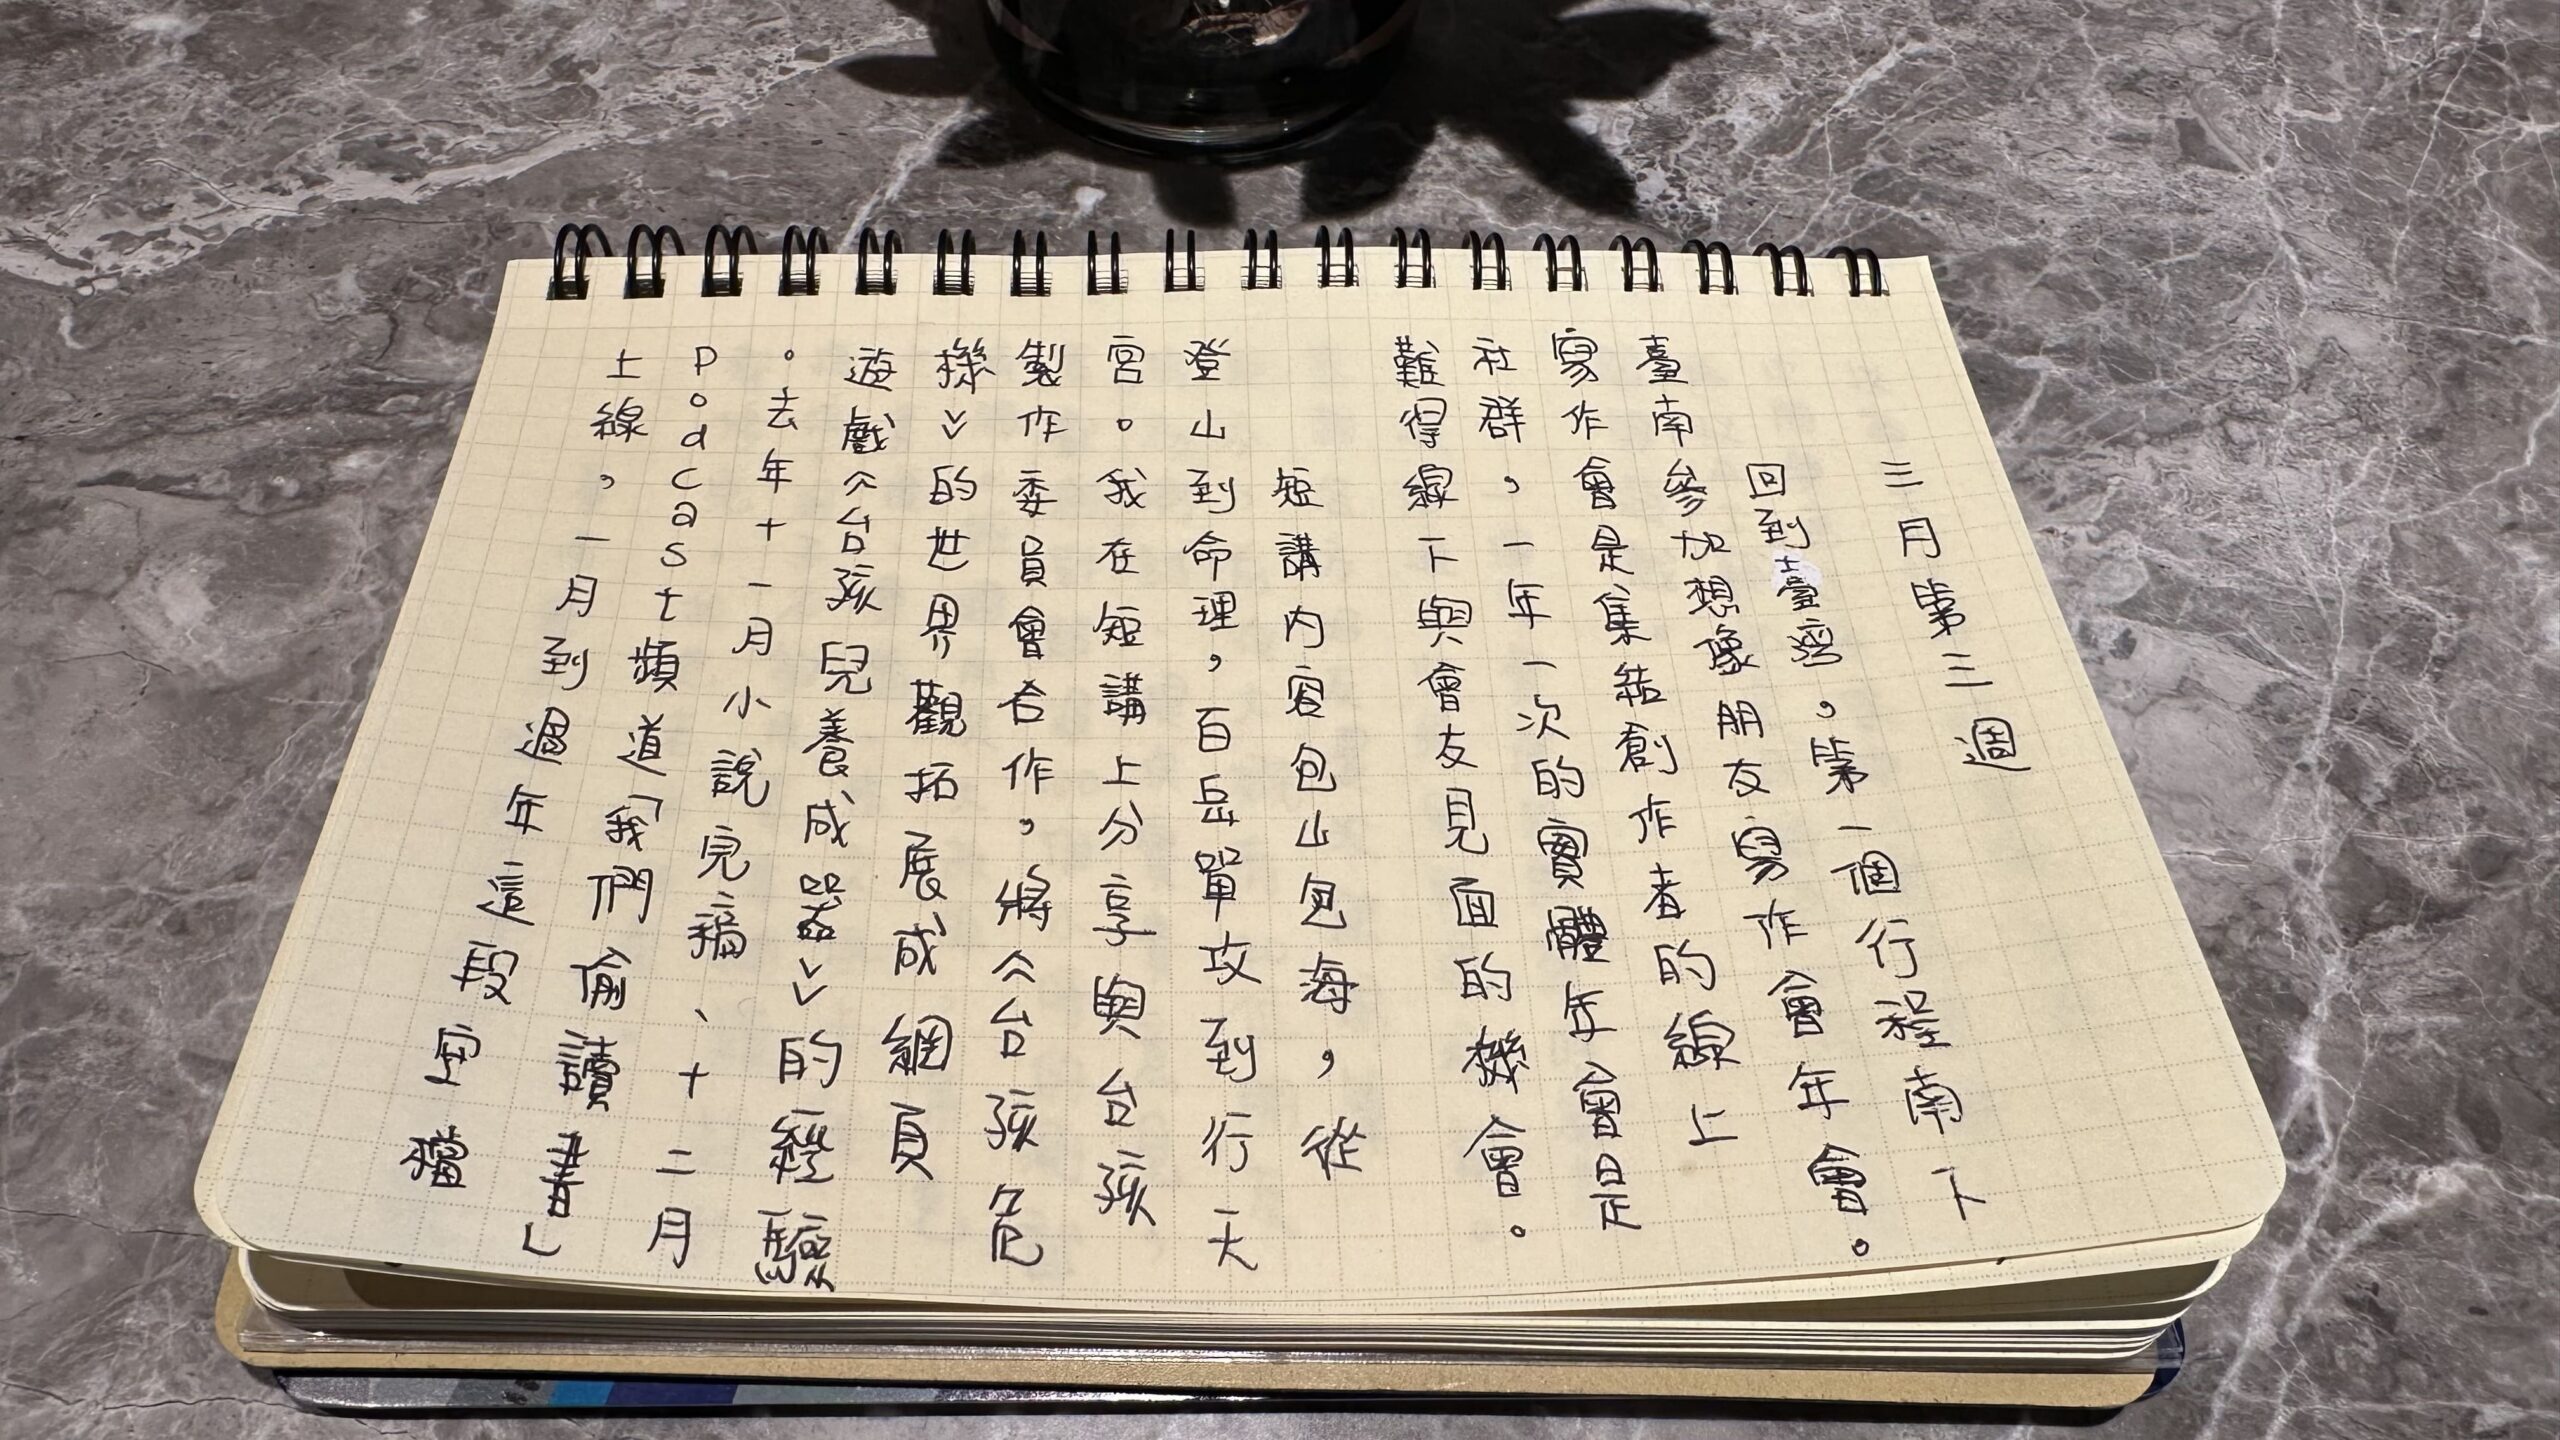 三月第三週
回到臺灣，第一個行程南下
臺南參加想像朋友寫作會年會。
寫作會是集結創作者的線上
社群，一年一次的實體年會是
難得線下與會友見面的機會。
短講內容包山包海，從
登山到命理，百岳單攻到行天
宮。我在短講上分享與台孩
製作委員會合作，將《台孩危
機》的世界觀拓展成網頁
遊戲《台孩兒養成器》的經驗
。去年十一月小說完稿、十二月
Podcast頻道「我們偷讀書」
上線，一月到過年這段空檔